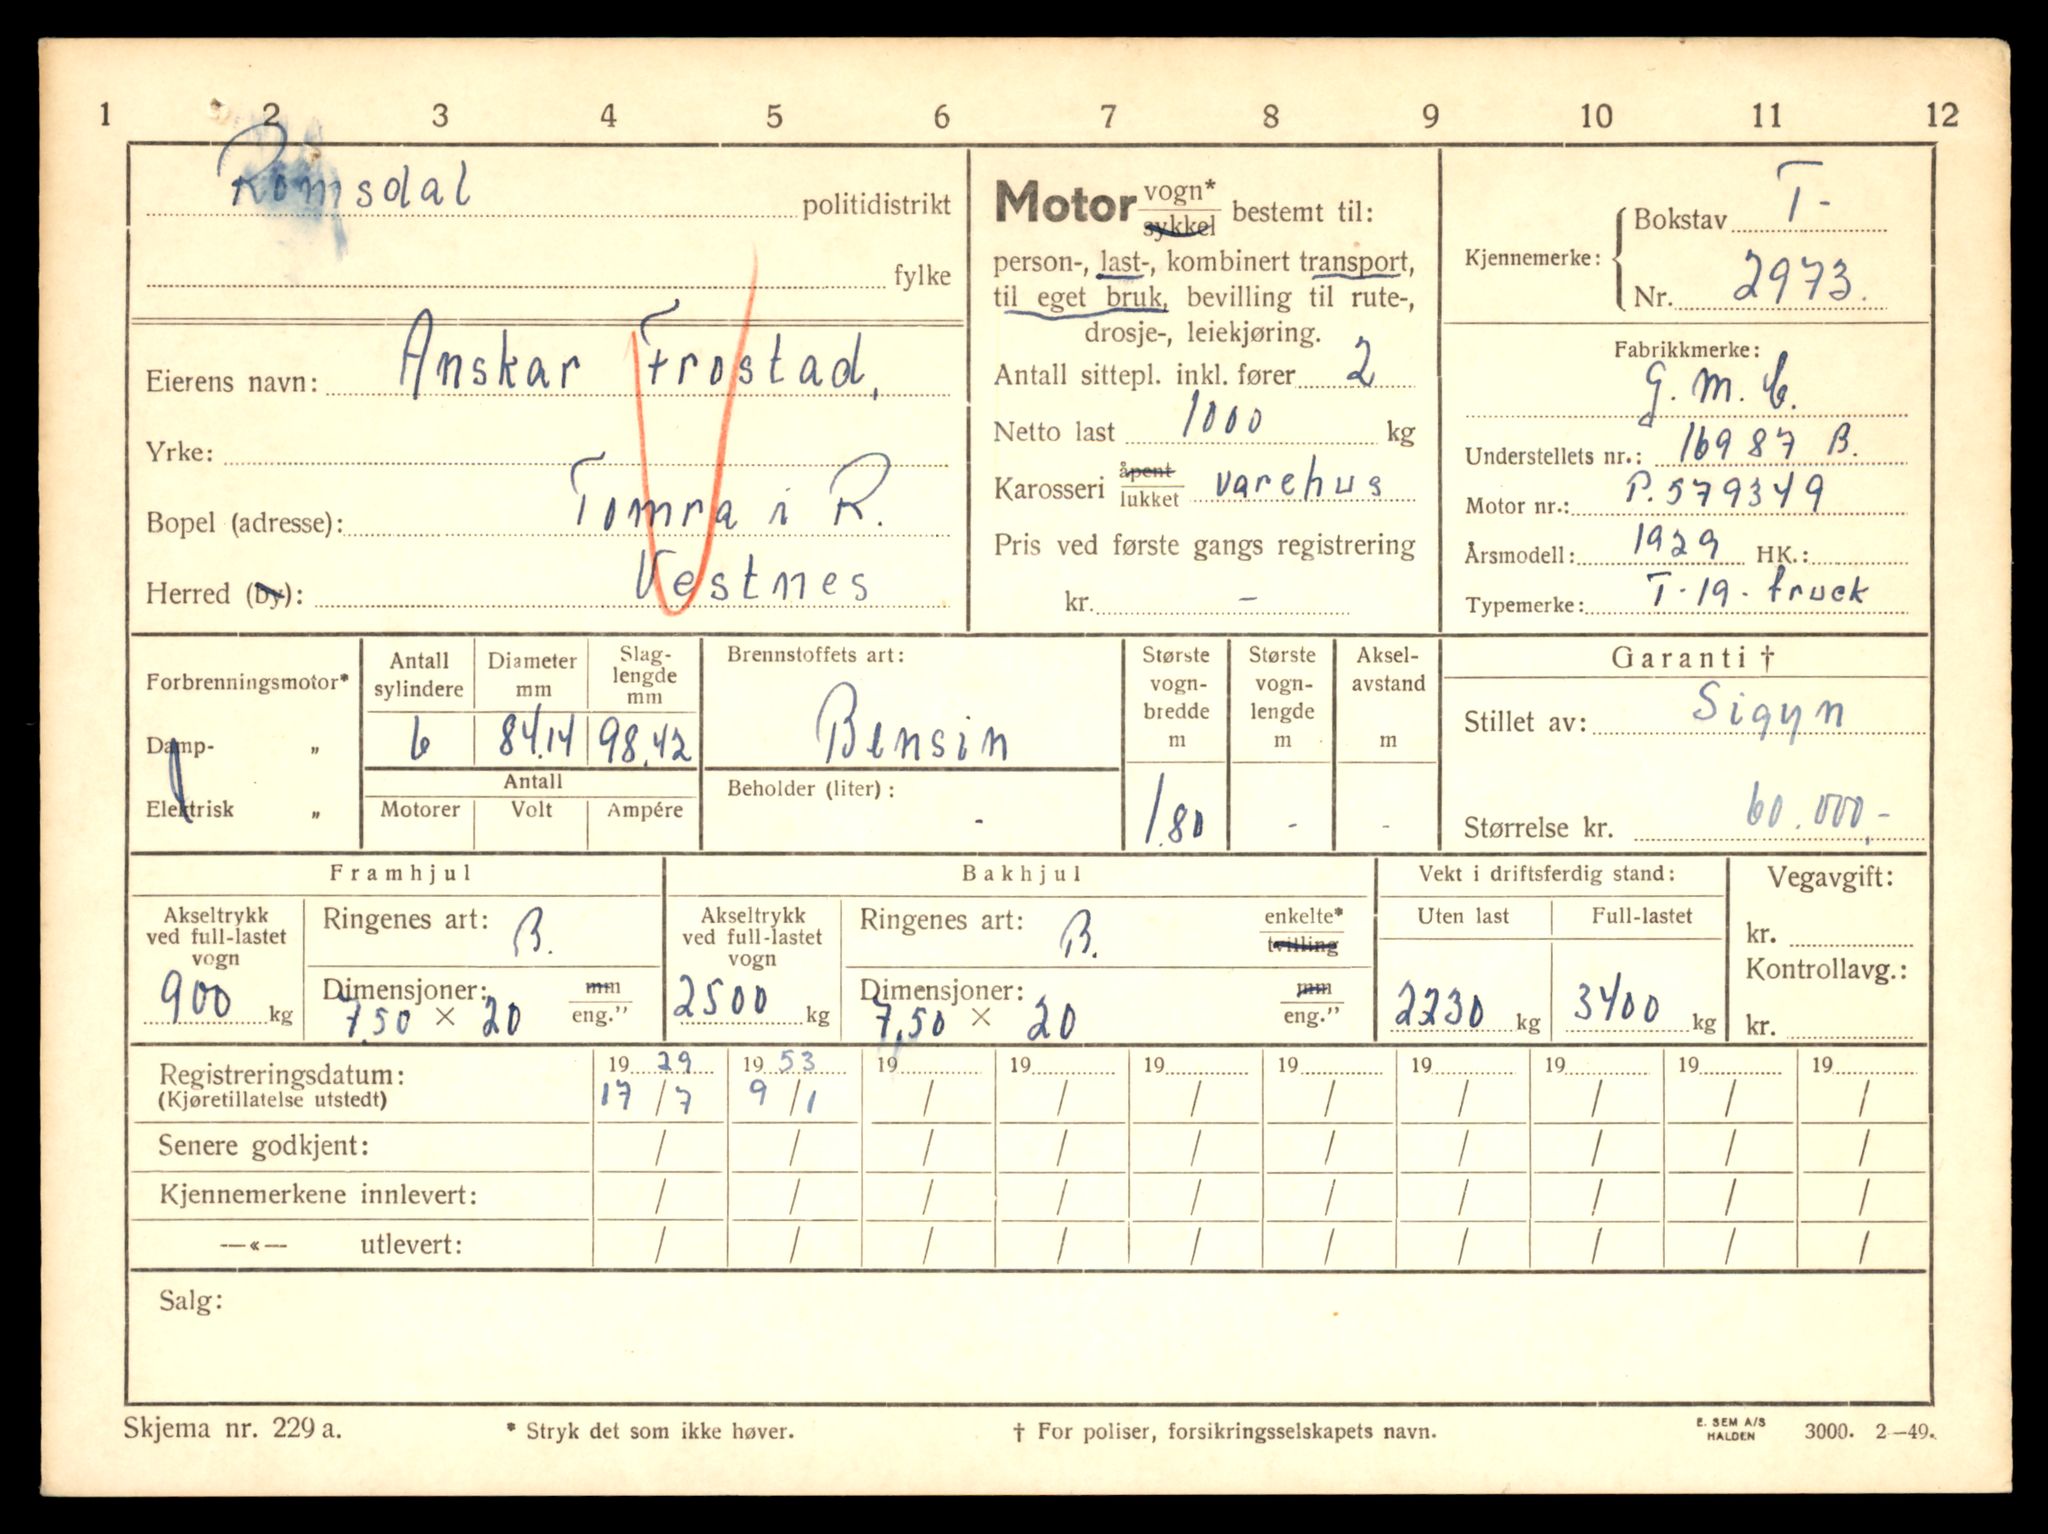 1 2 3 4 5 6 7 8 9 10 11 12
Romsdal politidistrikt
fylke
Eierens navn: Anskar Frostad,
Yrke:
Bopel (adresse): Tomra i R.
Herred (by): Vestnes
Motor vogn* sykkel bestemt til:
person-, last-, kombinert transport,
til eget bruk, bevilling til rute-,
drosje-, leiekjøring.
Antall sittepl. inkl. fører 2
Netto last 1000 kg
Karosseri åpent lukket varehus
Pris ved første gangs registrering
kr. -
Kjennemerke: Bokstav T-
Nr. 2973.
Fabrikkmerke:
G. M. C.
Understellets nr.: 16987 B.
Motor nr.: P. 579349
Årsmodell: 1929 HK.:
Typemerke: T-19-truck
Forbrenningsmotor*
Damp- „
Elektrisk „
Antall sylindere
6
Diameter mm
84.14
Slag-lengde mm
98.42
Antall
Motorer Volt Ampére
Brennstoffets art:
Bensin
Beholder (liter): -
Største vogn-bredde m
1.80
Største vogn-lengde m
-
Aksel-avstand m
-
Garanti †
Stillet av: Sigyn
Størrelse kr. 60.000,-
Framhjul
Akseltrykk ved full-lastet vogn
900 kg
Ringenes art: B.
Dimensjoner: mm
7.50 × 20 eng."
Bakhjul
Akseltrykk ved full-lastet vogn
2500 kg
Ringenes art: B. enkelte* tvilling
Dimensjoner: mm
7,50 × 20 eng."
Vekt i driftsferdig stand:
Uten last Full-lastet
2230 kg 3400 kg
Vegavgift:
kr.
Kontrollavg.:
kr.
Registreringsdatum: 19 29 19 53 19 19 19 19 19 19 19 19
(Kjøretillatelse utstedt) 17/7 9/1 / / / / / / / /
Senere godkjent: / / / / / / / / / /
Kjennemerkene innlevert: / / / / / / / / / /
—«— utlevert: / / / / / / / / / /
Salg:
Skjema nr. 229 a. * Stryk det som ikke høver. † For poliser, forsikringsselskapets navn. E. SEM A/S HALDEN 3000. 2—49.